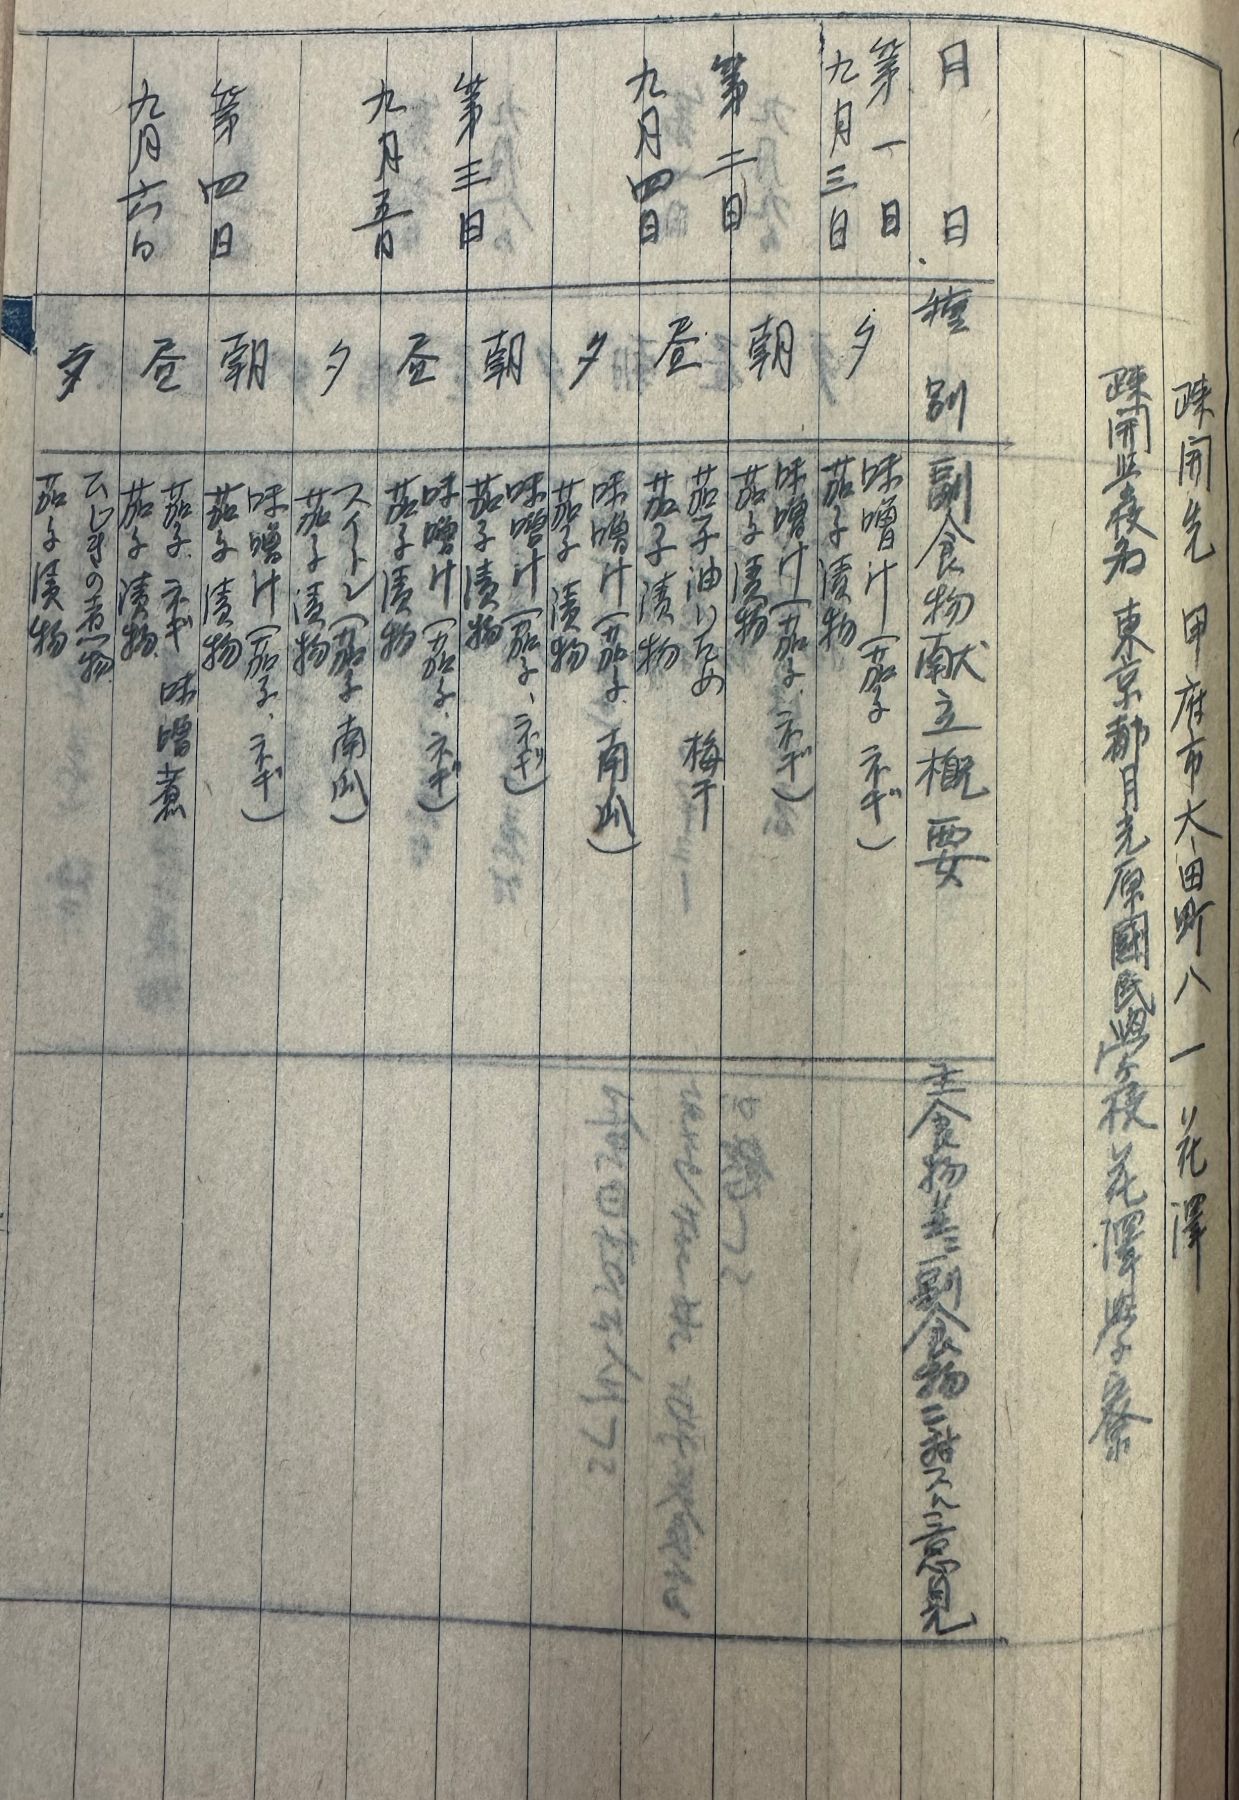 疎開先 甲府市大田町八一 花澤
疎開学校名 東京都月光原國民學校 花澤學寮
月日 種別 副食物献立概要 主食物並ニ副食物ニ対スル意見
第一日
九月三日
夕 味噌汁(茄子 ネギ)
茄子漬物
第二日
九月四日
朝 味噌汁(茄子、ネギ)
茄子漬物
昼 茄子油いため 梅干
茄子漬物
夕 味噌汁(茄子、南瓜)
茄子漬物
第三日
九月五日
朝 味噌汁(茄子、ネギ)
茄子漬物
昼 味噌汁(茄子、ネギ)
茄子漬物
夕 スイトン(茄子 南瓜)
茄子漬物
第四日
九月六日
朝 味噌汁(茄子、ネギ)
茄子漬物
昼 茄子、ネギ 味噌煮
茄子漬物
夕 ひじきの煮物
茄子漬物